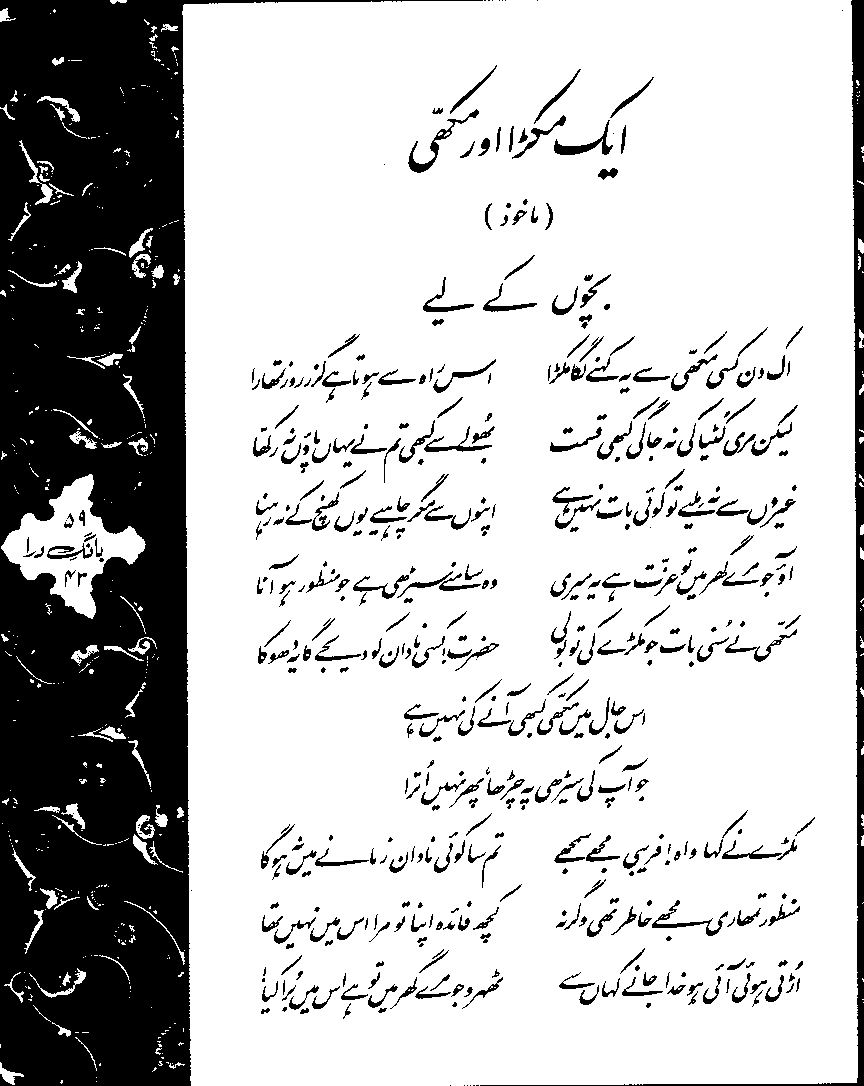 ایک مکڑا اور مکھّی
(ماخوذ)
بچّوں کے لیے
اک دن کسی مکھّی سے یہ کہنے لگا مکڑا اس راہ سے ہوتا ہے گزر روز تمھارا
لیکن مری کُٹیا کی نہ جاگی کبھی قسمت بھُولے سے کبھی تم نے یہاں پاؤں نہ رکھّا
غیروں سے نہ ملیے تو کوئی بات نہیں ہے اپنوں سے مگر چاہیے یوں کھنچ کے نہ رہنا
آؤ جو مرے گھر میں تو عزّت ہے یہ میری وہ سامنے سیڑھی ہے جو منظور ہو آنا
مکھّی نے سُنی بات جو مکڑے کی تو بولی حضرت! کسی نادان کو دیجے گا یہ دھوکا
اس جال میں مکھّی کبھی آنے کی نہیں ہے
جو آپ کی سیڑھی پہ چڑھا، پھر نہیں اُترا
مکڑے نے کہا واہ! فریبی مجھے سمجھے تم سا کوئی نادان زمانے میں نہ ہوگا
منظور تمھاری مجھے خاطر تھی وگرنہ کچھ فائدہ اپنا تو مرا اس میں نہیں تھا
اُڑتی ہوئی آئی ہو خدا جانے کہاں سے ٹھہرو جو مرے گھر میں تو ہے اس میں بُرا کیا!
۵۹
بانگِ درا
۴۳